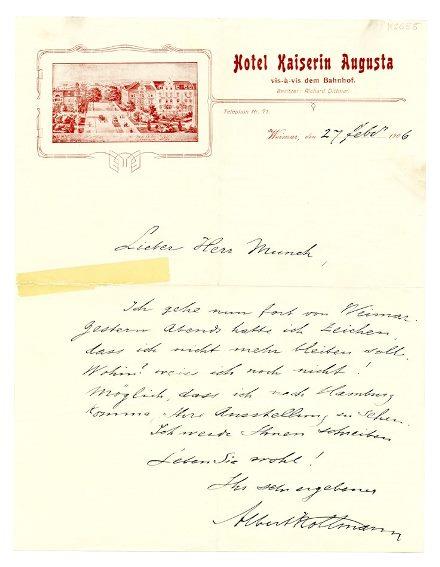 K2655
Hotel Kaiserin Augusta
vis-à-vis dem Bahnhof.
Besitzer: Richard
Telephon Nr. 71.
Weimar, den 27 Feb. 1906
Lieber Herr Munch,
Ich gehe nun fort von Weimar.
Gestern Abends hatte ich Zeichen,
dass ich nicht mehr bleiben soll.
Wohin? weis ich noch nicht!
Möglich, dass ich nach Hamburg
komme, Ihre Ausstellung zu sehen.
Ich werde Ihnen schreiben
Leben Sie wohl!
Ihr sehr ergebener
Albert Kollmann